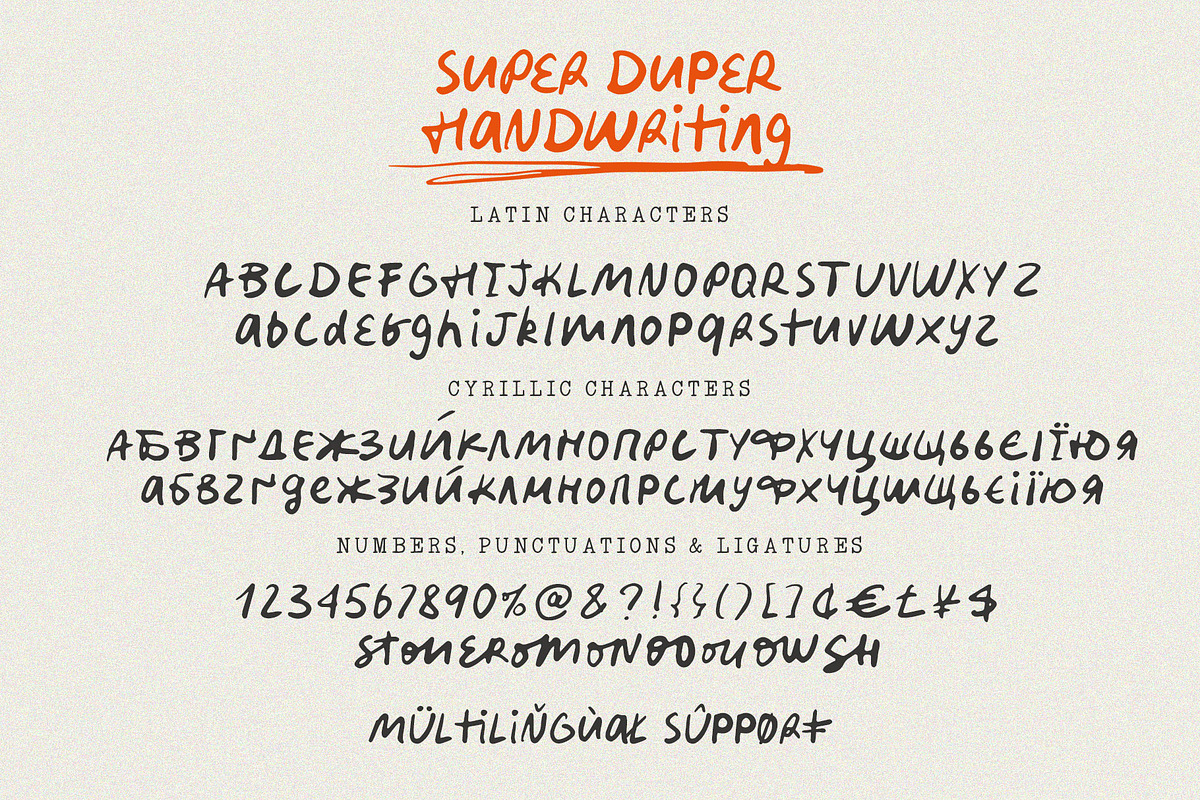 SUPER DUPER
HANDWRiting
LATIN CHARACTERS
ABCDEFGHIJKLMNOPQRSTUVWXYZ
abcdefghijklmnopqrstuvwxyz
CYRILLIC CHARACTERS
АБВГҐДЕЖЗИЙКЛМНОПРСТУФХЧЦШЩЬЬЄІЇЮЯ
абвгґдежзийклмнопрстуфхчцшщьєіїюя
NUMBERS, PUNCTUATIONS & LIGATURES
1234567890%@&?!{}()[]¢€£¥$
STONEROMONOOOUOWSH
MÜLtiLiŇGÙaŁ SÛPPØRŦ